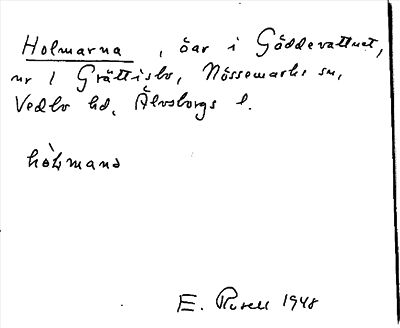 Holmarna, öar i Gäddevattnet,
nr 1 Grättisbo, Nössemarks sn,
Vedbo hd, Älvsborgs l.
hòlmanɑ
E. 1948